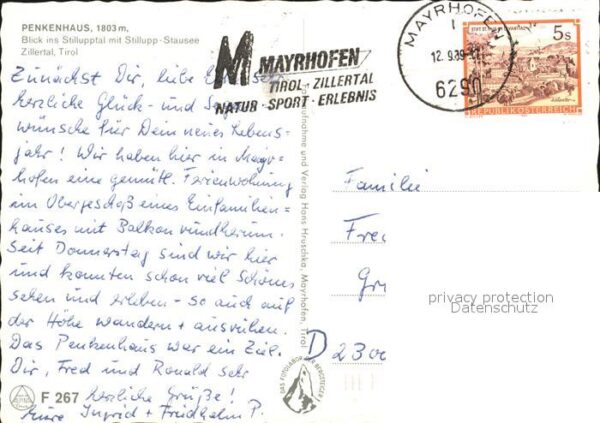 PENKENHAUS, 1803 m,
Blick ins Stillupptal mit Stillupp-Stausee
Zillertal, Tirol
M MAYRHOFEN
TIROL - ZILLERTAL
NATUR · SPORT · ERLEBNIS
MAYRHOFEN
1
12.9.89
6290
5s
REPUBLIK ÖSTERREICH
Zunächst Dir, liebe
herzliche Glück- und
wünsche für Dein neues Lebens-
jahr! Wir haben hier in Mayr-
hofen eine gemütl. Ferienwohnung
im Obergeschoß eines Einfamilien=
hauses mit Balkon rundherum.
Seit Donnerstag sind wir hier
und konnten schon viel Schönes
sehen und erleben - so auch auf
der Höhe wandern + ausruhen.
Das Penkenhaus war ein Ziel.
Dir, Fred und Ronald sehr
herzliche Grüße!
Eure Ingrid + Friedhelm P.
F 267
Aufnahme und Verlag Hans Hruschka, Mayrhofen, Tirol
DAS FOTOLABOR DER BERGSTEIGER
Familie
Fre
Gr
D 2300
privacy protection
Datenschutz